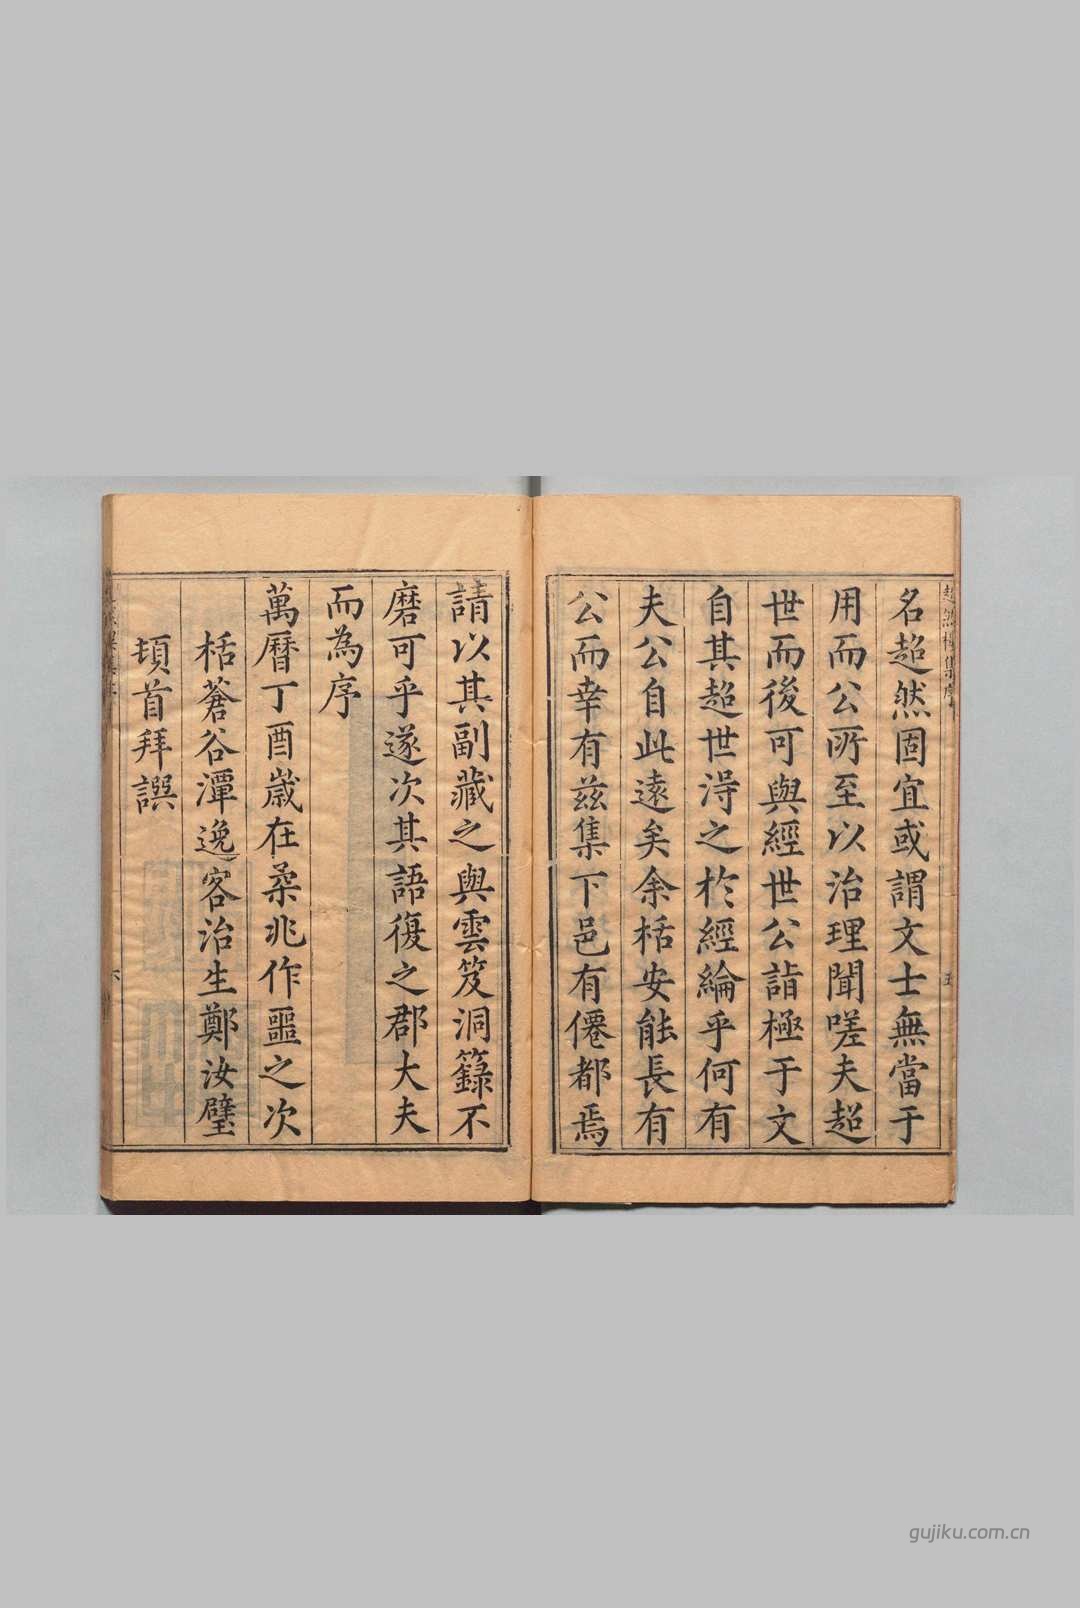 名超然固宜或謂文士無當于
用而公所至以治理聞嗟夫超
世而後可與經世公詣極于文
自其超世淂之於經綸乎何有
夫公自此遠矣余栝安能長有
公而幸有茲集下邑有僊都焉
請以其副藏之與雲笈洞籙不
磨可乎遂次其語復之郡大夫
而為序
萬曆丁酉歲在柔兆作噩之次
栝蒼谷潭逸客治生鄭汝璧
頓首拜譔
六
gujiku.com.cn